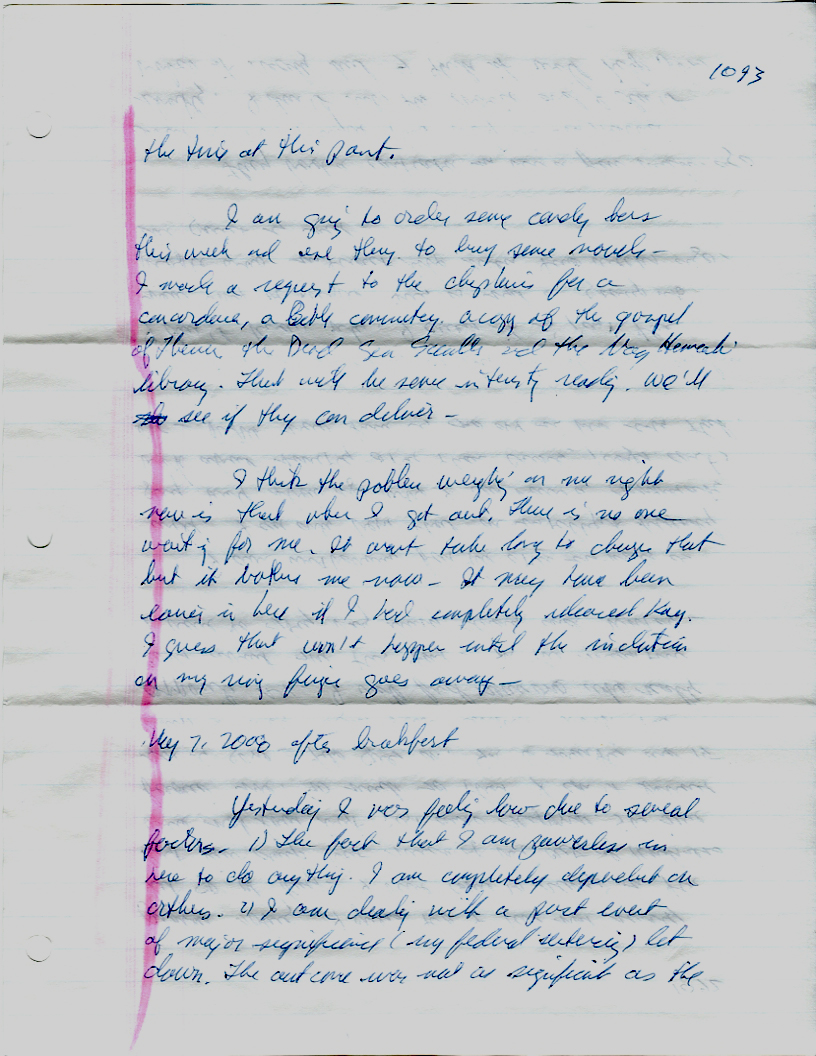 1093
the time at this point.
I am going to order some candy bars
this week and use them to buy some novels -
I made a request to the chaplains for a
concordance, a Bible commentary, a copy of the gospel
of Thomas the Dead Sea Scrolls and the Nag Hamadi
library. That will be some intensity reading. We'll
see if they can deliver -
I think the problem weighing on me right
now is that when I get out, there is no one
waiting for me. It won't take long to change that
but it bothers me now - It may have been
easier in here if I had completely released Kay.
I guess that won't happen until the indentation
on my ring finger goes away -
May 7, 2008 after breakfast
Yesterday I was feeling low due to several
factors. 1) The fact that I am powerless in
here to do anything. I am completely dependent on
others. 2) I am dealing with a post event
of major significance (my federal sentencing) let
down. The outcome was not as significant as the